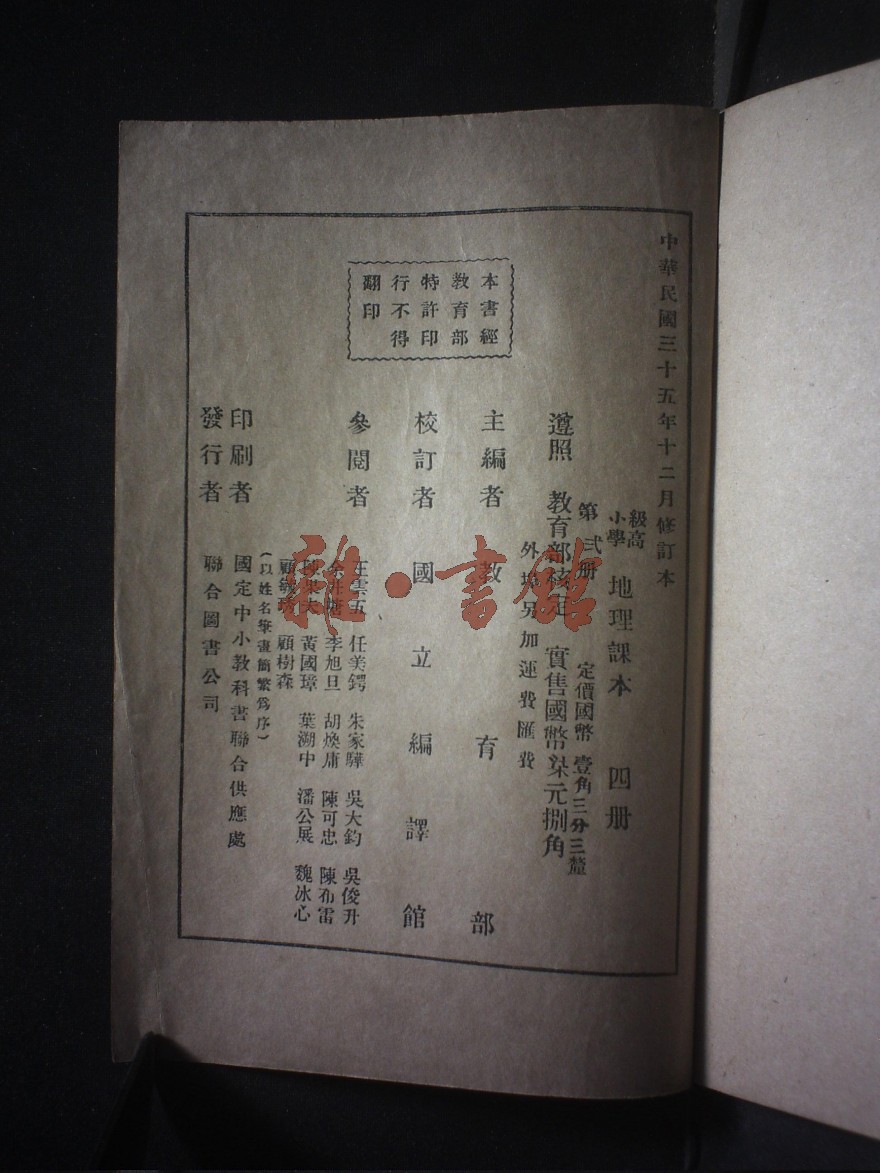 中華民國三十五年十二月修訂本
高級小學 地理課本 四册
第弍册 定價國幣壹角三分三釐
遵照 教育部核定 實售國幣柒元捌角
外埠另加運費匯費
主編者 教育部
校訂者 國立編譯館
參閱者 王雲五 任美鍔 朱家驊 吳大鈞 吳俊升
余井塘 李旭旦 胡煥庸 陳可忠 陳布雷
陳果夫 黃國璋 葉溯中 潘公展 魏冰心
顧樹森
(以姓名筆畫簡繁爲序)
印刷者 國定中小教科書聯合供應處
發行者 聯合圖書公司
本書經
教育部
特許印
行不得
翻印
雜·書館